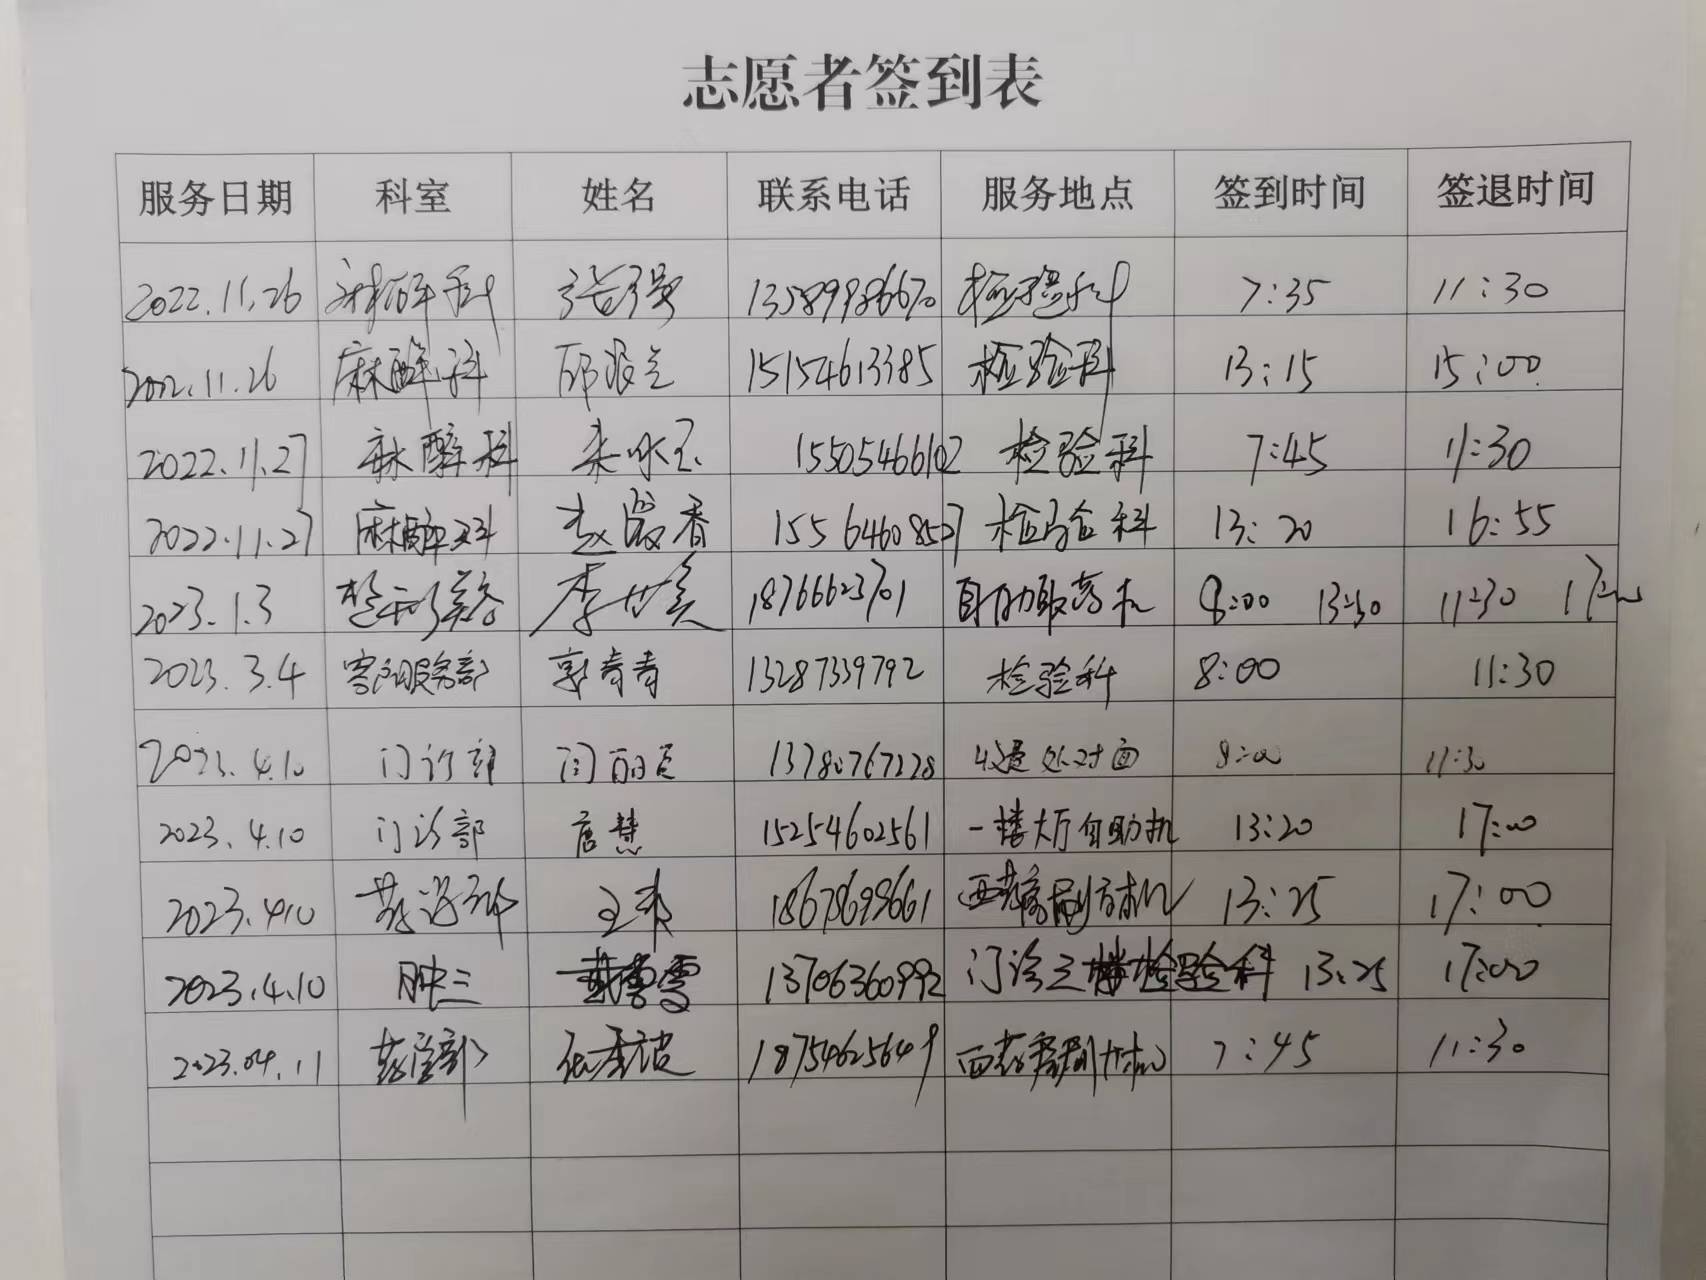 志愿者签到表
服务日期 科室 姓名 联系电话 服务地点 签到时间 签退时间
2022.11.26 麻醉科 张强 13589986670 检验科 7:35 11:30
2022.11.26 麻醉科 15154613385 检验科 13:15 15:00
2022.11.27 麻醉科 15505466102 检验科 7:45 11:30
2022.11.27 麻醉科 赵霞香 15564608527 检验科 13:20 16:55
2023.1.3 李世英 18766623701 自助取药机 8:00 13:30 11:30 17:00
2023.3.4 客户服务部 郭青青 13287339792 检验科 8:00 11:30
2023.4.10 门诊部 13780767228 处对面 8:00 11:30
2023.4.10 门诊部 唐慧 15254602561 一楼大厅自助机 13:20 17:00
2023.4.10 18678699661 西药房 13:25 17:00
2023.4.10 肿三 雪 13706360992 门诊三楼检验科 13:25 17:00
2023.04.11 药学部 18754625649 西药房 7:45 11:30